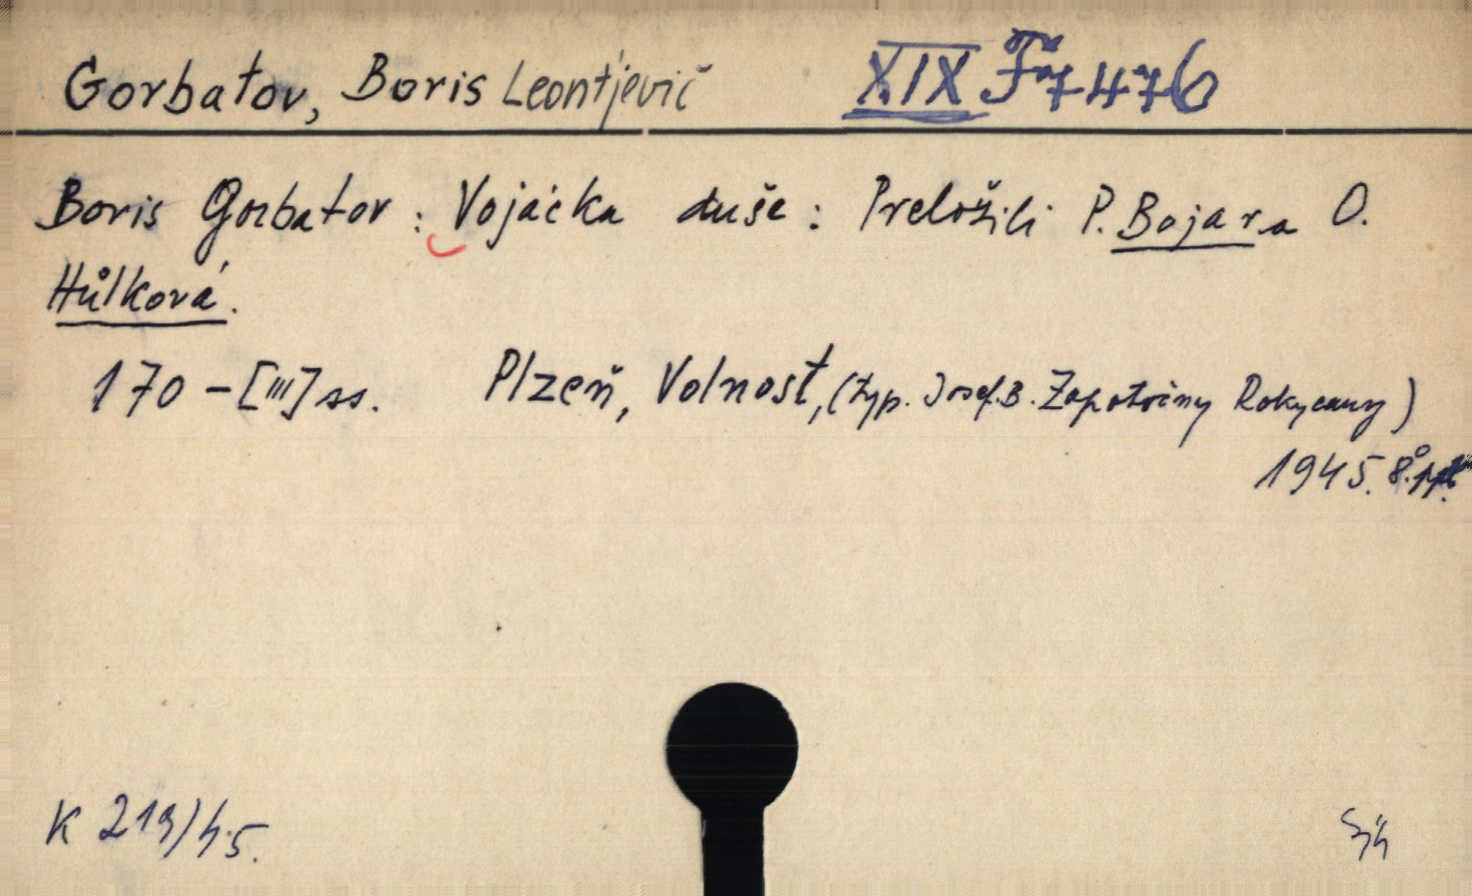 Gorbatov, Boris Leontjevič XIX F 7476
Boris Gorbatov: Vojácka duše: Preložili P. Bojar a O.
Hůlková.
170 - [III] ss. Plzeň, Volnost, (typ. Josef. B. Zápotočny Rokycany)
1945. 8°.
K 219/45.